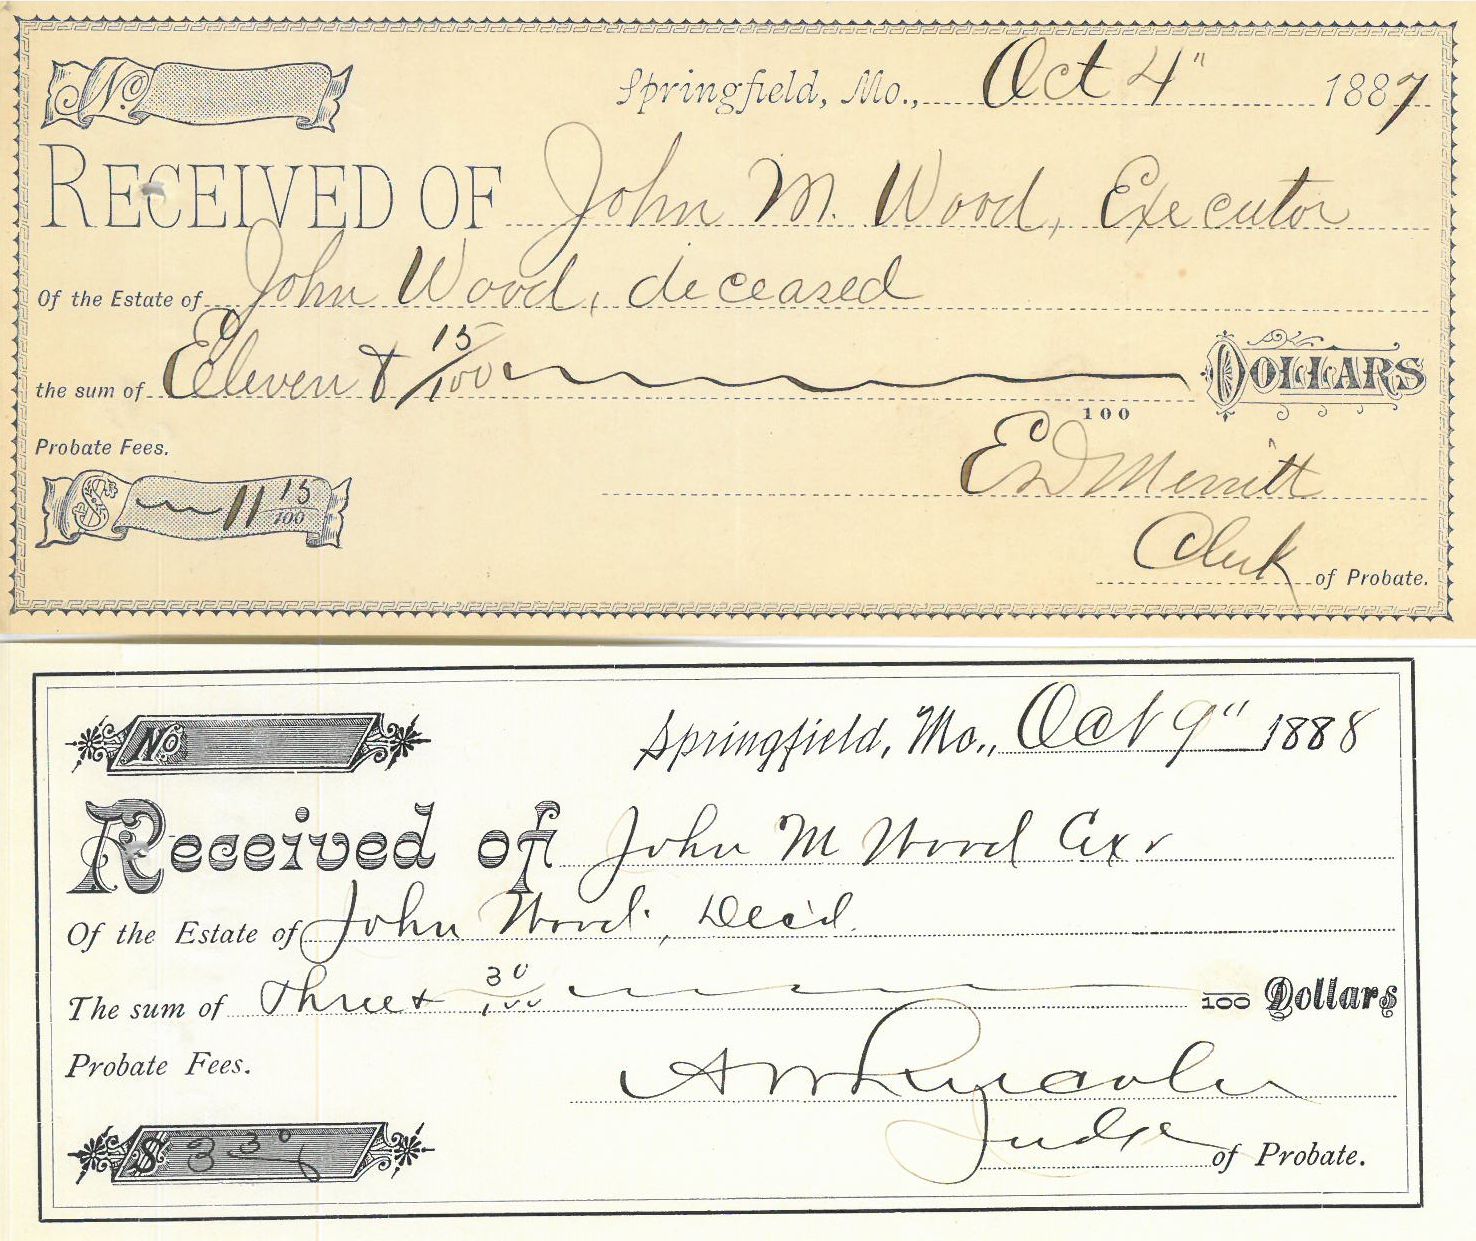 No. Springfield, Mo., Oct 4" 1887
RECEIVED OF John M. Wood, Executor
Of the Estate of John Wood, deceased
the sum of Eleven & 15/100 DOLLARS
100
Probate Fees. E D Merritt
$ 11 15/100
Clerk of Probate.
No Springfield, Mo., Oct 9" 1888
Received of John M Wood Exr
Of the Estate of John Wood, Dec'd.
The sum of Three & 30/100 100 Dollars
Probate Fees. A W Lincoln
$ 3 30 Judge of Probate.